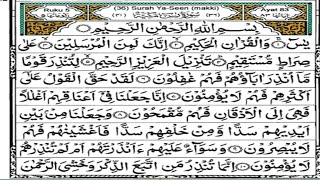 Ruku 5
(36) Surah Ya-Seen (makki)
Ayat 83
بِسْمِ اللهِ الرَّحْمٰنِ الرَّحِيْمِ
يٰسٓ ۚ وَالْقُرْاٰنِ الْحَكِيْمِ ۙ اِنَّكَ لَمِنَ الْمُرْسَلِيْنَ ۙ عَلٰى
صِرَاطٍ مُّسْتَقِيْمٍ ؕ تَنْزِيْلَ الْعَزِيْزِ الرَّحِيْمِ ۙ لِتُنْذِرَ قَوْمًا
مَّاۤ اُنْذِرَ اٰبَآؤُهُمْ فَهُمْ غٰفِلُوْنَ ۝ لَقَدْ حَقَّ الْقَوْلُ عَلٰٓى
اَكْثَرِهِمْ فَهُمْ لَا يُؤْمِنُوْنَ ۝ اِنَّا جَعَلْنَا فِيْۤ اَعْنَاقِهِمْ اَغْلٰلًا
فَهِيَ اِلَى الْاَذْقَانِ فَهُمْ مُّقْمَحُوْنَ ۝ وَجَعَلْنَا مِنْۢ بَيْنِ
اَيْدِيْهِمْ سَدًّا وَّمِنْ خَلْفِهِمْ سَدًّا فَاَغْشَيْنٰهُمْ فَهُمْ
لَا يُبْصِرُوْنَ ۝ وَسَوَآءٌ عَلَيْهِمْ ءَاَنْذَرْتَهُمْ اَمْ لَمْ تُنْذِرْهُمْ
لَا يُؤْمِنُوْنَ ۝ اِنَّمَا تُنْذِرُ مَنِ اتَّبَعَ الذِّكْرَ وَخَشِيَ الرَّحْمٰنَ